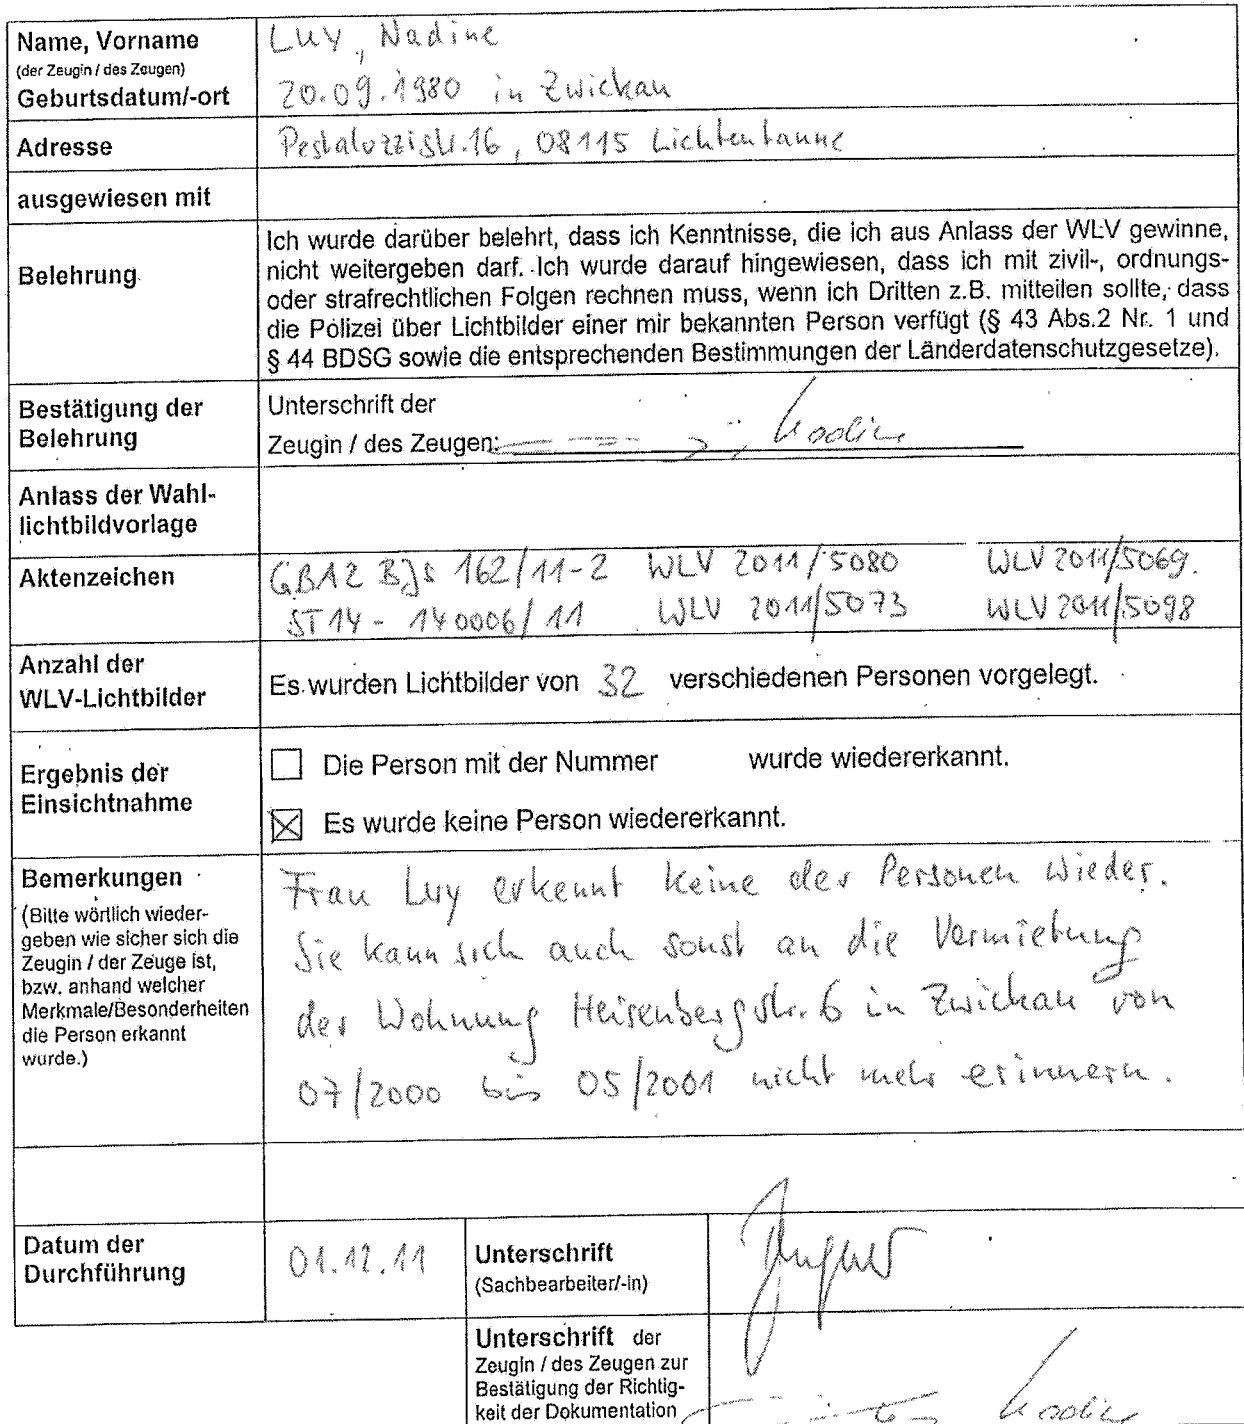 Name, Vorname
(der Zeugin / des Zeugen)
Geburtsdatum/-ort
Luy, Nadine
20.09.1980 in Zwickau
Adresse
Pestalozzistr.16, 08115 Lichtentanne
ausgewiesen mit
Belehrung
Ich wurde darüber belehrt, dass ich Kenntnisse, die ich aus Anlass der WLV gewinne,
nicht weitergeben darf. Ich wurde darauf hingewiesen, dass ich mit zivil-, ordnungs-
oder strafrechtlichen Folgen rechnen muss, wenn ich Dritten z.B. mitteilen sollte, dass
die Polizei über Lichtbilder einer mir bekannten Person verfügt (§ 43 Abs.2 Nr. 1 und
§ 44 BDSG sowie die entsprechenden Bestimmungen der Länderdatenschutzgesetze).
Bestätigung der
Belehrung
Unterschrift der
Zeugin / des Zeugen:
Anlass der Wahl-
lichtbildvorlage
Aktenzeichen
GBA 2 BJs 162/11-2 WLV 2011/5080 WLV 2011/5069
ST 14 - 140006/11 WLV 2011/5073 WLV 2011/5098
Anzahl der
WLV-Lichtbilder
Es wurden Lichtbilder von 32 verschiedenen Personen vorgelegt.
Ergebnis der
Einsichtnahme
Die Person mit der Nummer wurde wiedererkannt.
Es wurde keine Person wiedererkannt.
Bemerkungen
(Bitte wörtlich wieder-
geben wie sicher sich die
Zeugin / der Zeuge ist,
bzw. anhand welcher
Merkmale/Besonderheiten
die Person erkannt
wurde.)
Frau Luy erkennt keine der Personen wieder.
Sie kann sich auch sonst an die Vermietung
der Wohnung Heisenbergstr. 6 in Zwickau von
07/2000 bis 05/2001 nicht mehr erinnern.
Datum der
Durchführung
01.12.11
Unterschrift
(Sachbearbeiter/-in)
Unterschrift der
Zeugin / des Zeugen zur
Bestätigung der Richtig-
keit der Dokumentation